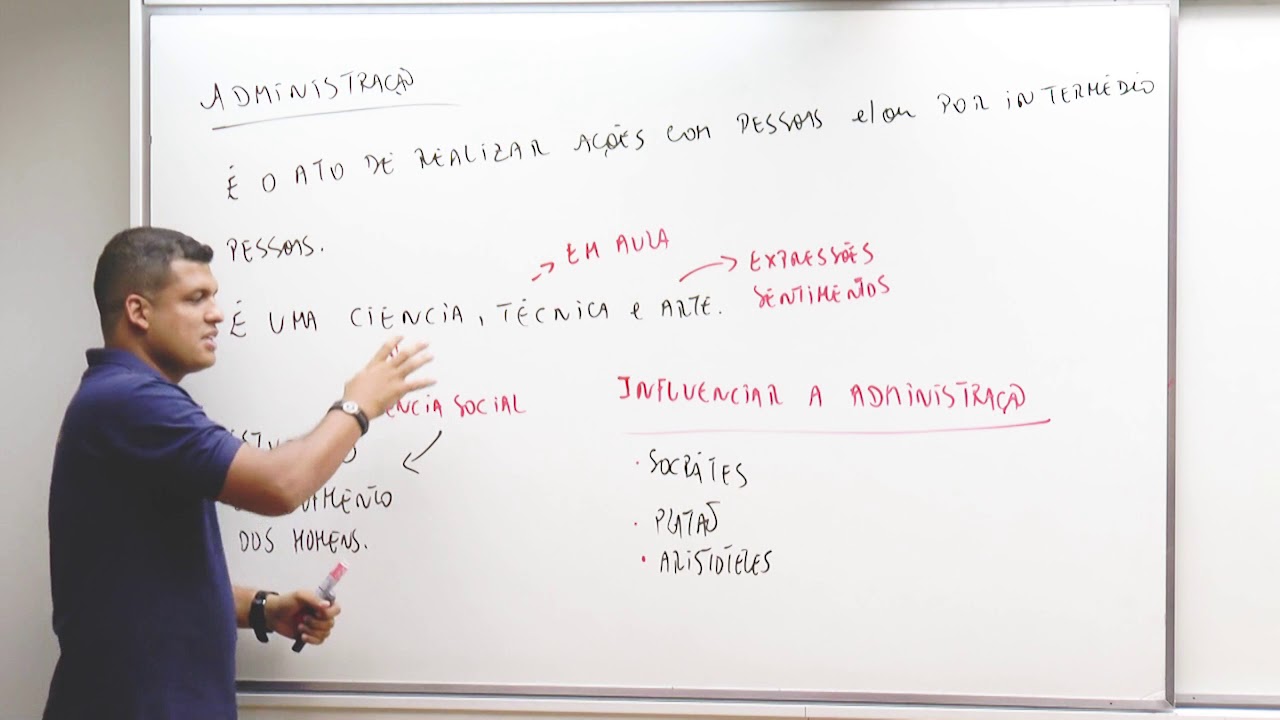 ADMINISTRAÇÃO
É O ATO DE REALIZAR AÇÕES COM PESSOAS e/ou POR INTERMÉDIO
PESSOAS.
EM AULA
EXPRESSÕES
SENTIMENTOS
É UMA CIÊNCIA, TÉCNICA e ARTE.
ENCIA SOCIAL
DOS HOMENS.
INFLUENCIAR A ADMINISTRAÇÃO
· SOCRÁTES
· PLATÃO
· ARISTÓTELES